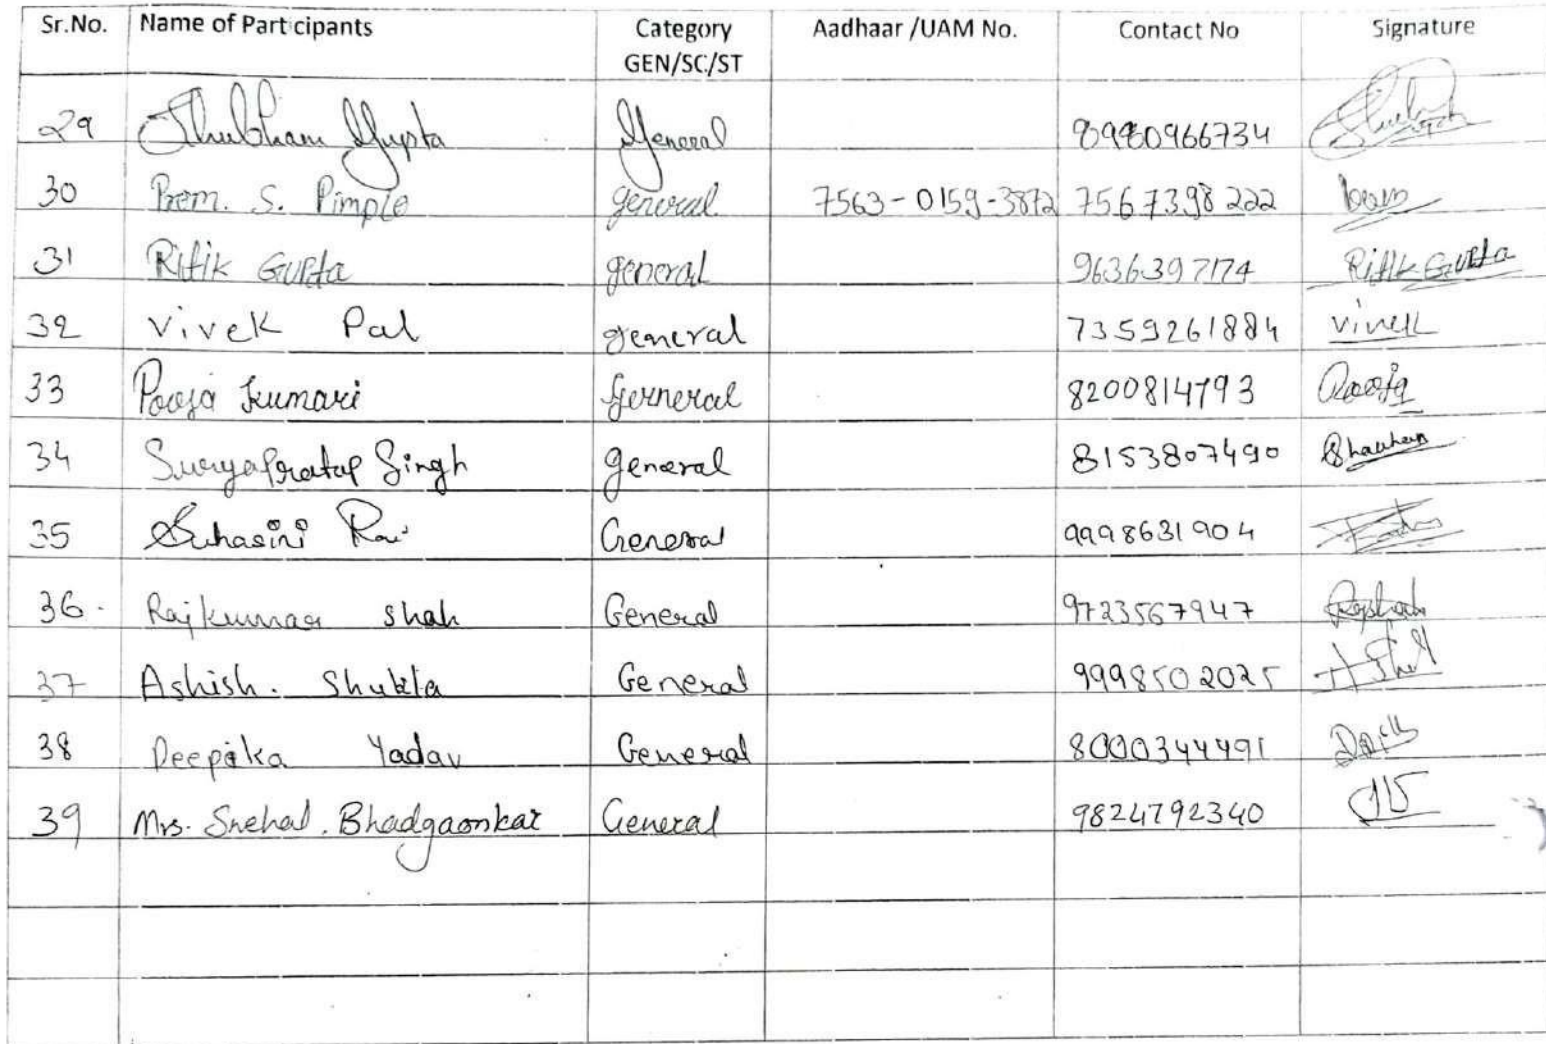 Sr.No. Name of Participants Category Aadhaar /UAM No. Contact No Signature
GEN/SC/ST
29 Shubham Gupta General 8980966734
30 Prem. S. Pimple general 7563-0159-3872 7567398222
31 Ritik Gupta general 9636397174 Ritik Gupta
32 Vivek Pal general 7359261884 vivek
33 Pooja Kumari Gerneral 8200814793 Pooja
34 Suryapratap Singh general 8153807490 Bhauhan
35 Suhasini Rai General 9998631904
36. Rajkumar Shah General 9723567947 Rajshah
37 Ashish. Shukla General 9998502025
38 Deepika Yadav General 8000344491
39 Mrs. Snehal. Bhadgaonkar General 9824792340